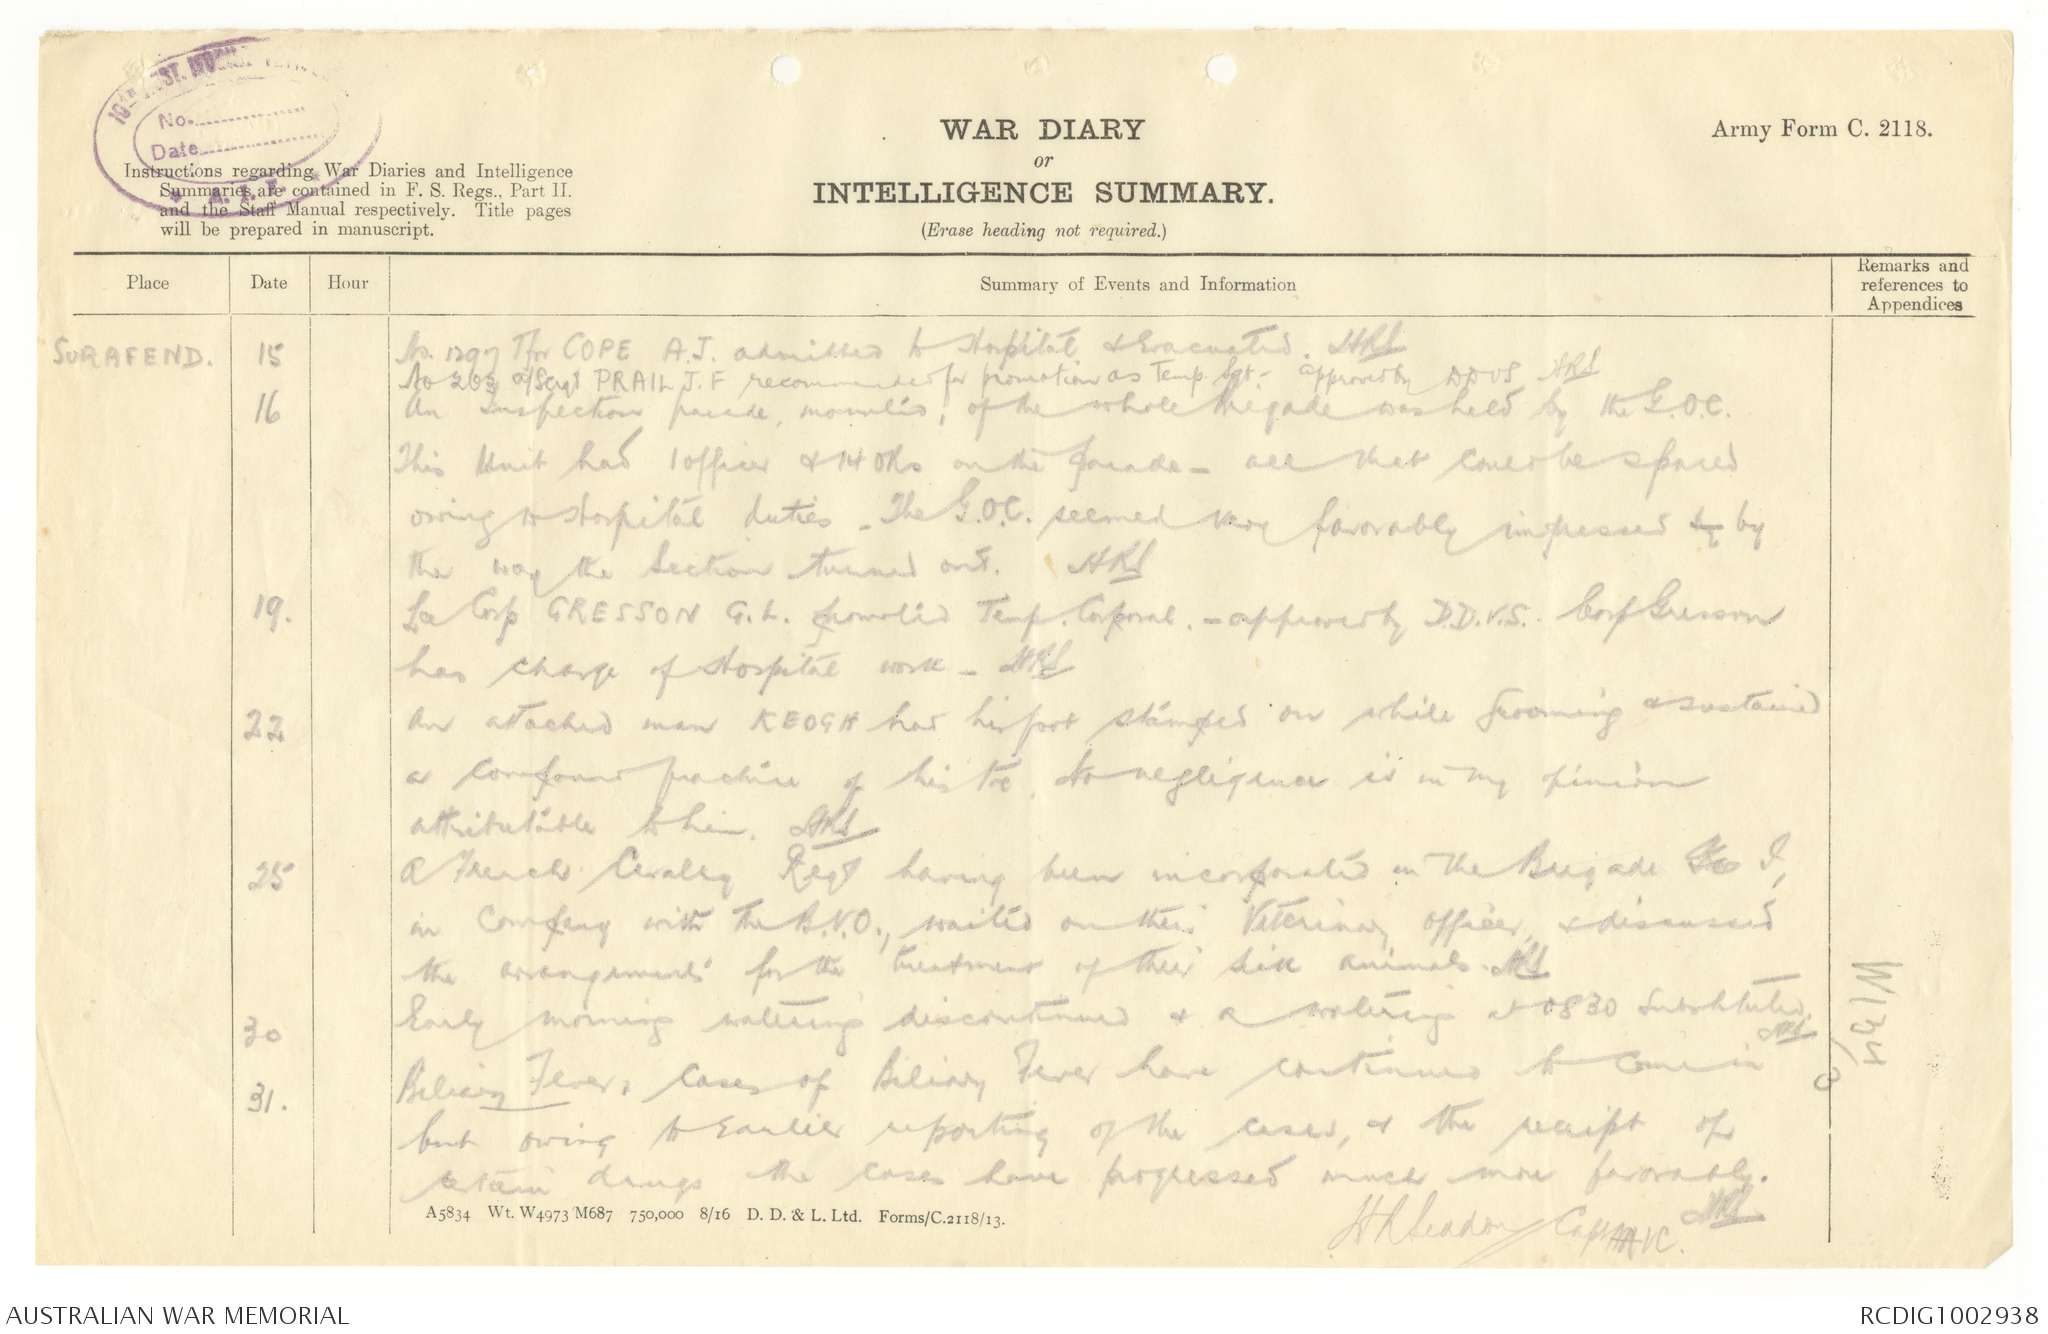 No.
Date
A. I. F.
WAR DIARY
or
INTELLIGENCE SUMMARY.
(Erase heading not required.)
Army Form C. 2118.
Instructions regarding War Diaries and Intelligence
Summaries are contained in F. S. Regs., Part II.
and the Staff Manual respectively. Title pages
will be prepared in manuscript.
Place Date Hour Summary of Events and Information Remarks and references to Appendices
SURAFEND. 15 No. 1297 Tpr COPE A.J. admitted to Hospital & Evacuated. HRS
No 203 a/Sergt PRAIL J.F recommended for promotion as Temp. Sgt - approved by DDVS HRS
16 An Inspection parade, mounted, of the whole Brigade was held by the G.O.C.
This Unit had 1 officer & 14 ORs on the parade - all that could be spared
owing to Hospital duties - The G.O.C. seemed very favorably impressed by by
the way the Section turned out. HRS
19. Lce Corp GRESSON G.L. promoted Temp. Corporal. - approved by D.D.V.S. Corp Gresson
has charge of Hospital work - HRS
22 An attached man KEOGH had his foot stamped on while grooming & sustained
a compound fracture of his toe. No negligence is in my opinion
attributable to him. HRS
25 A French Cavalry Regt having been incorporated in the Brigade I,
in company with the B.V.O., waited on their Veterinary officer, & discussed
the arrangements for the treatment of their sick animals. HRS
30 Early morning watering discontinued & a watering at 0830 substituted. HRS
31. Biliary Fever. Cases of Biliary Fever have continued to come in
but owing to earlier reporting of the cases, & the receipt of
certain drugs the cases have progressed much more favorably.
HRS
H R Seddon Capt AAVC.
A5834 Wt. W4973/M687 750,000 8/16 D. D. & L. Ltd. Forms/C.2118/13.
AUSTRALIAN WAR MEMORIAL
RCDIG1002938